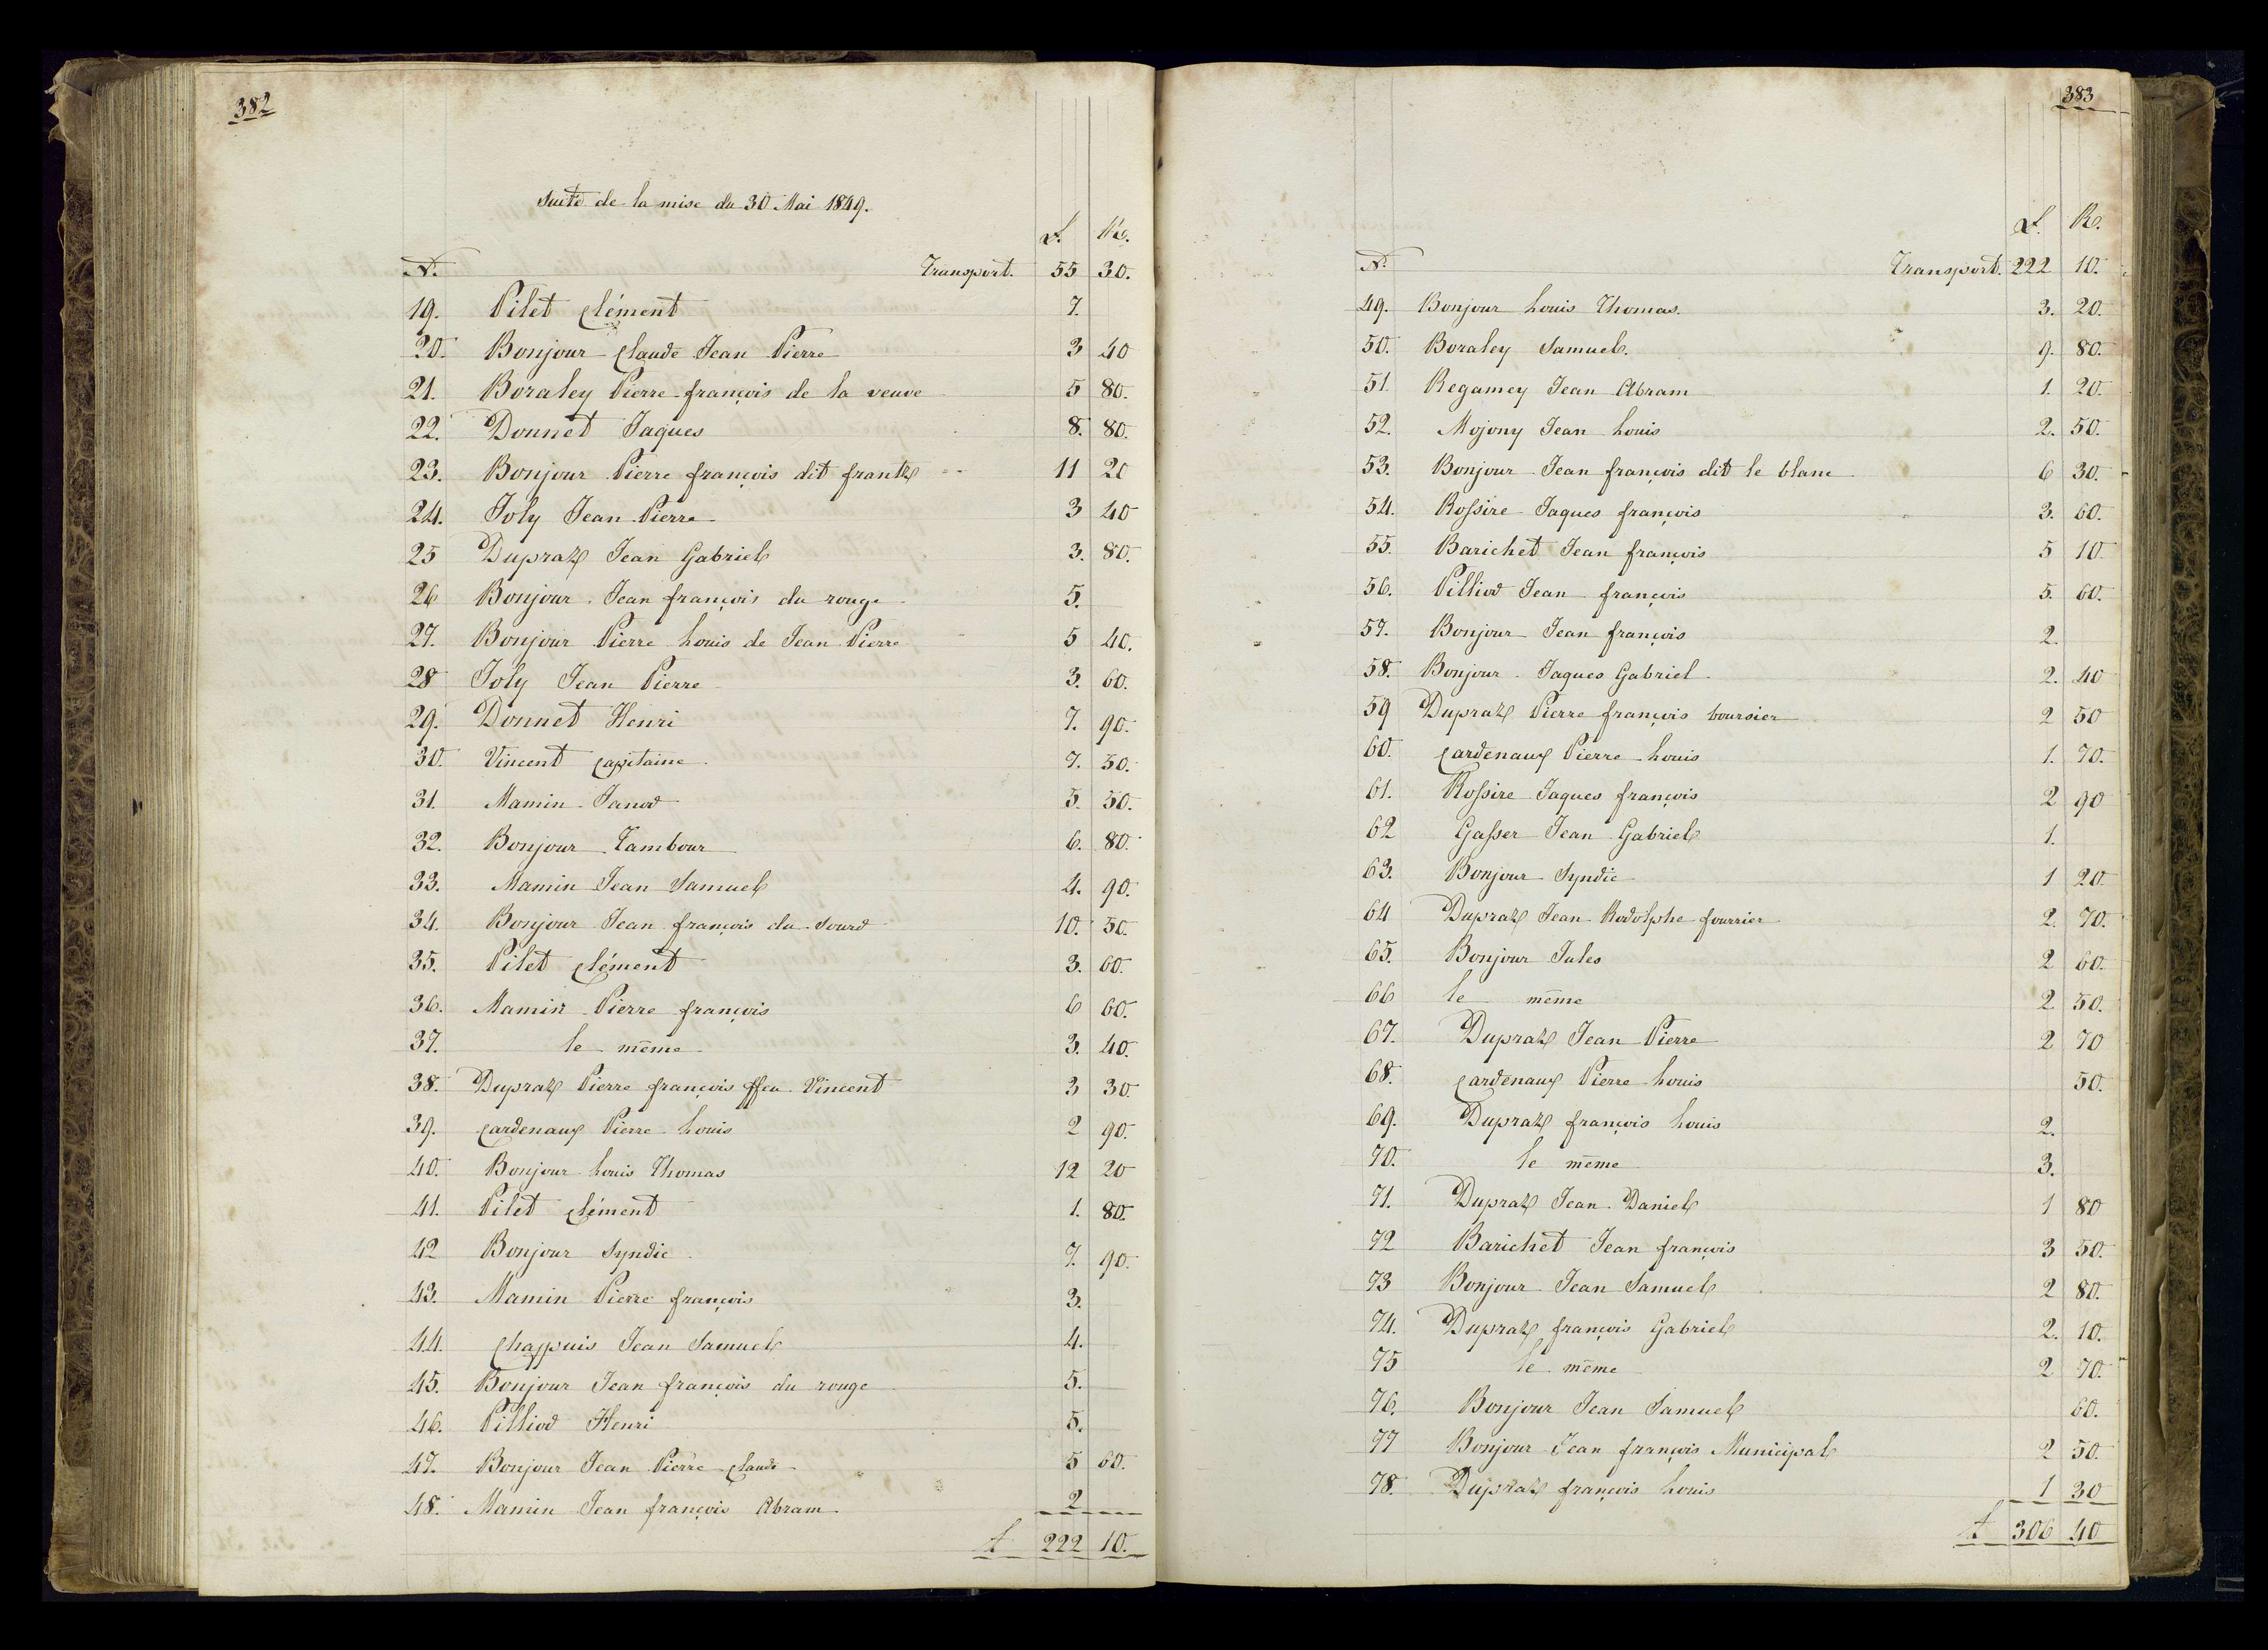 382
Suite de la mise du 30 Mai 1849.
L. Rp.
N.° Transport. 55 30.
19. Pilet Clément 7.
20. Bonjour Claude Jean Pierre 3 40
21. Boraley Pierre françois de la veuve 5 80.
22. Donnet Jaques 8. 80.
23. Bonjour Pierre françois dit frantz 11 20
24. Joly Jean Pierre 3 40
25 Dupraz Jean Gabriel 3. 80.
26 Bonjour Jean françois du rouge 5.
27. Bonjour Pierre Louis de Jean Pierre 5 40.
28 Joly Jean Pierre 3. 60.
29. Donnet Henri 7. 90.
30. Vincent Capitaine 7. 50.
31. Mamin Janod 5. 50.
32. Bonjour Tambour 6. 80.
33. Mamin Jean Samuel 4. 90.
34. Bonjour Jean françois du Sourd 10. 50.
35. Pilet Clément 3. 60.
36. Mamin Pierre françois 6 60.
37. le même 3. 40.
38. Dupraz Pierre françois ffeu Vincent 3 30
39. Cardenaux Pierre Louis 2 90.
40. Bonjour Louis Thomas 12 20
41. Pilet Clément 1. 80.
42 Bonjour Syndic 7. 90.
43. Mamin Pierre françois 3.
44. Chappuis Jean Samuel 4.
45. Bonjour Jean françois du rouge 5.
46. Pilliod Henri 5.
47. Bonjour Jean Pierre Claude 5 60.
48. Mamin Jean françois Abram 2
L 222 10.
383
L. Rp.
N.° Transport. 222 10.
49. Bonjour Louis Thomas. 3. 20.
50. Boraley Samuel. 9. 80.
51. Regamey Jean Abram 1. 20.
52. Mojony Jean Louis 2. 50.
53. Bonjour Jean françois dit le blanc 6 30.
54. Rossire Jaques françois 3. 60.
55. Barichet Jean françois 5 10.
56. Pilliod Jean françois 5. 60.
57. Bonjour Jean françois 2.
58. Bonjour Jaques Gabriel 2. 40
59 Dupraz Pierre françois boursier 2 50
60. Cardenaux Pierre Louis 1. 70.
61. Rossire Jaques françois 2 90
62 Gasser Jean Gabriel 1.
63. Bonjour Syndic 1 20
64 Dupraz Jean Rodolphe fourrier 2. 70.
65. Bonjour Jules 2 60.
66 le même 2 50.
67. Dupraz Jean Pierre 2 70
68. Cardenaux Pierre Louis 50.
69. Dupraz françois Louis 2.
70. le même 3.
71. Dupraz Jean Daniel 1 80
72 Barichet Jean françois 3 50.
73 Bonjour Jean Samuel 2 80.
74. Dupraz françois Gabriel 2. 10.
75 le même 2 70.
76. Bonjour Jean Samuel 60.
77 Bonjour Jean françois Municipal 2 50.
78. Dupraz françois Louis 1 30
L 306 40